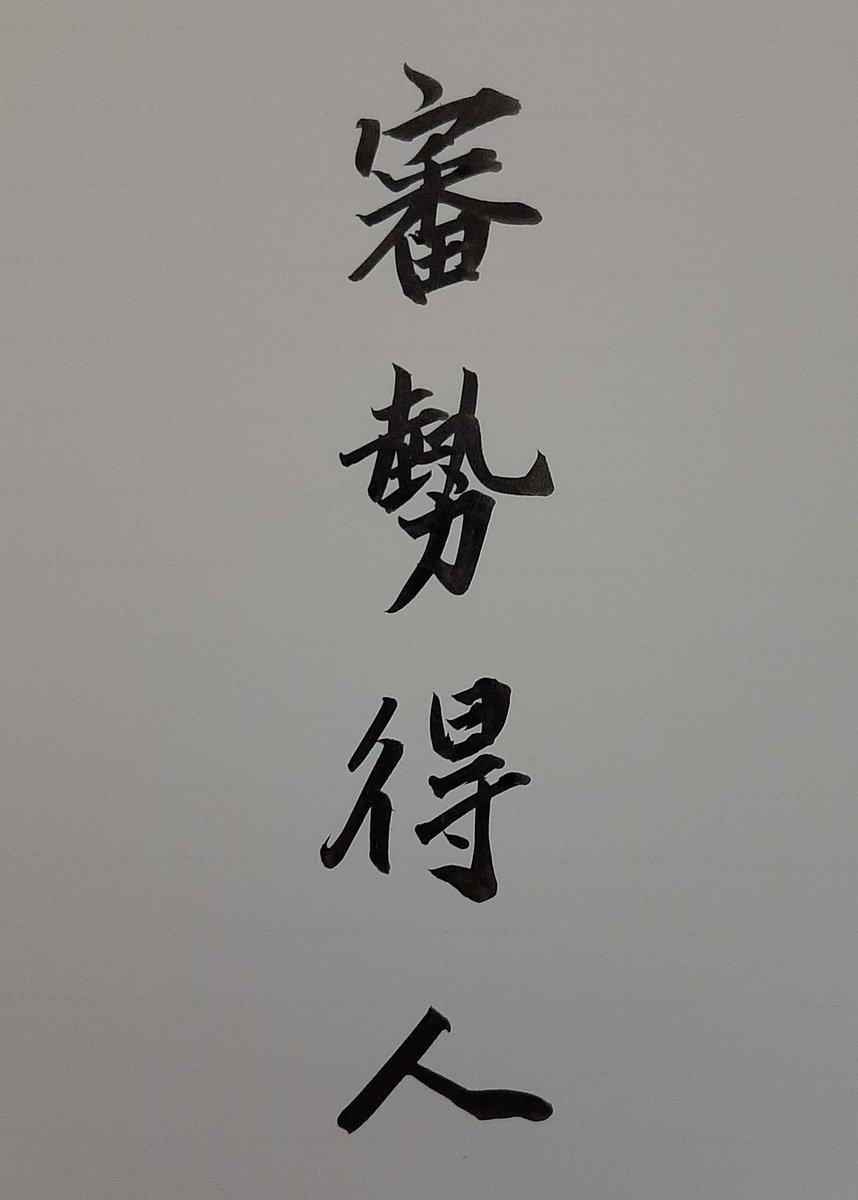 審勢得人